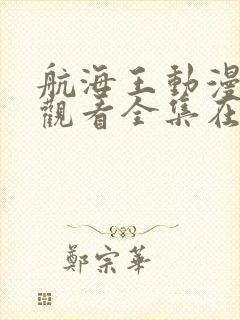 航海王動漫
觀看全集在
鄭宗華